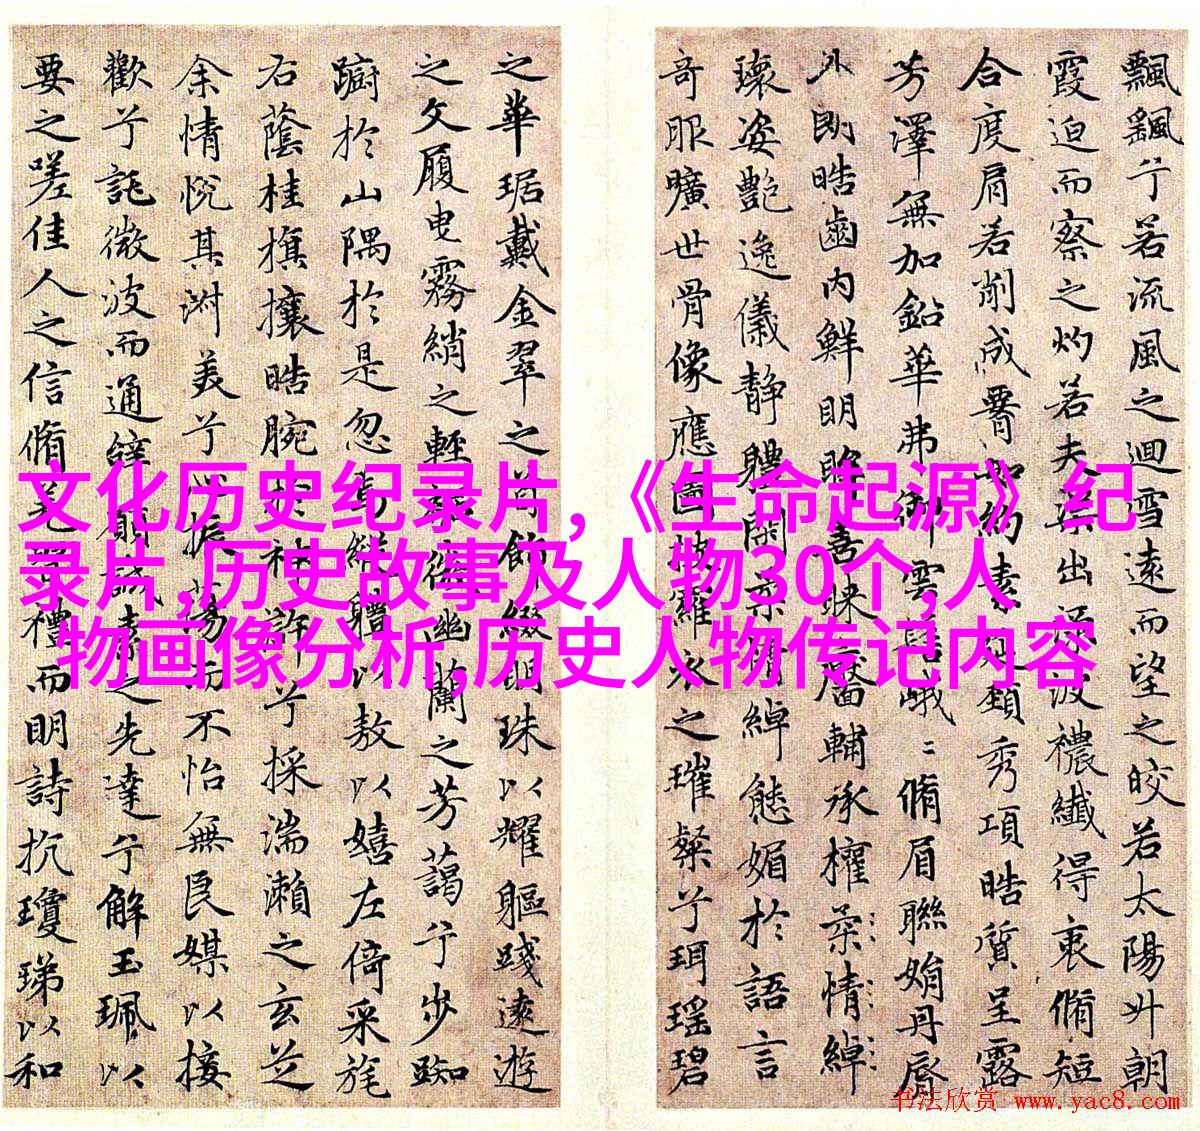 飄飖兮若流風之迴雪遠而望之皎若太陽升朝
霞迫而察之灼若夫渠出淥波襛纖得衷脩短
合度肩若削成如約素延頸秀項皓質呈露
芳澤無加鉛華弗御雲髻峨〻脩眉聯娟丹脣
外朗皓齒內鮮明眸善睞靨輔承權柔情綽
瓌姿艷逸儀靜體閑柔情綽態媚於語言
奇服曠世骨像應圖披羅衣之璀粲兮珥瑤碧
之華琚戴金翠之首飾綴明珠以耀軀踐遠遊
之文履曳霧綃之輕裾微幽蘭之芳藹兮步踟
蹰於山隅於是忽焉縱體以敖以嬉左倚采旄
右蔭桂旗攘皓腕於神滸兮採湍瀨之玄芝
余情悅其淑美兮心振蕩而不怡無良媒以接
歡兮託微波而通辭願誠素之先達兮解玉珮以
要之嗟佳人之信脩羌習禮而明詩抗瓊珶以和
文化历史纪录片,《生命起源》纪
录片,历史故事及人物30个,人
物画像分析,历史人物传记内容
书法欣赏 www.yac8.com